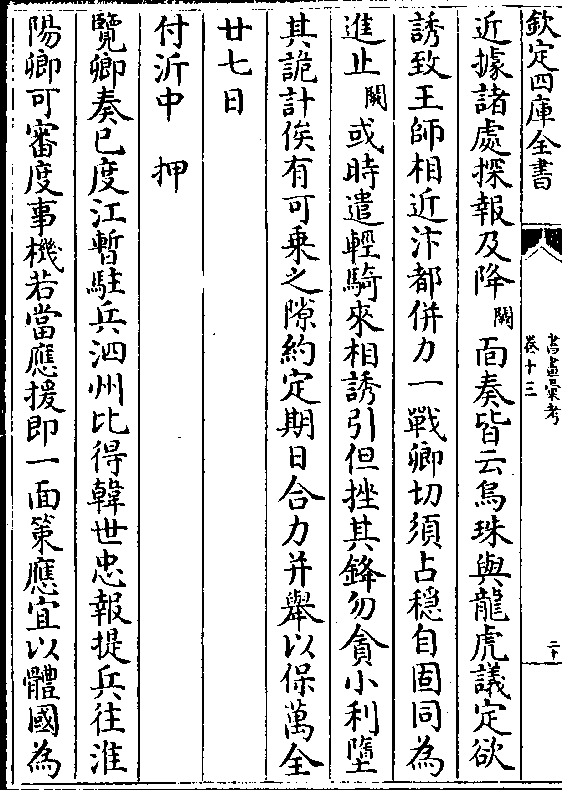 欽定四庫全書
書畫彙考
卷十三
二十
近據諸處探報及降闕面奏皆云烏珠與龍虎議定欲
誘致王師相近汴都併力一戰卿切須占穩自固同為
進止闕或時遣輕騎來相誘引但挫其鋒勿貪小利墮
其詭計俟有可乗之隙約定期日合力并舉以保萬全
廿七日
付沂中 押
覽卿奏已度江暫駐兵泗州比得韓世忠報提兵往淮
陽卿可審度事機若當應援即一面策應宜以體國為